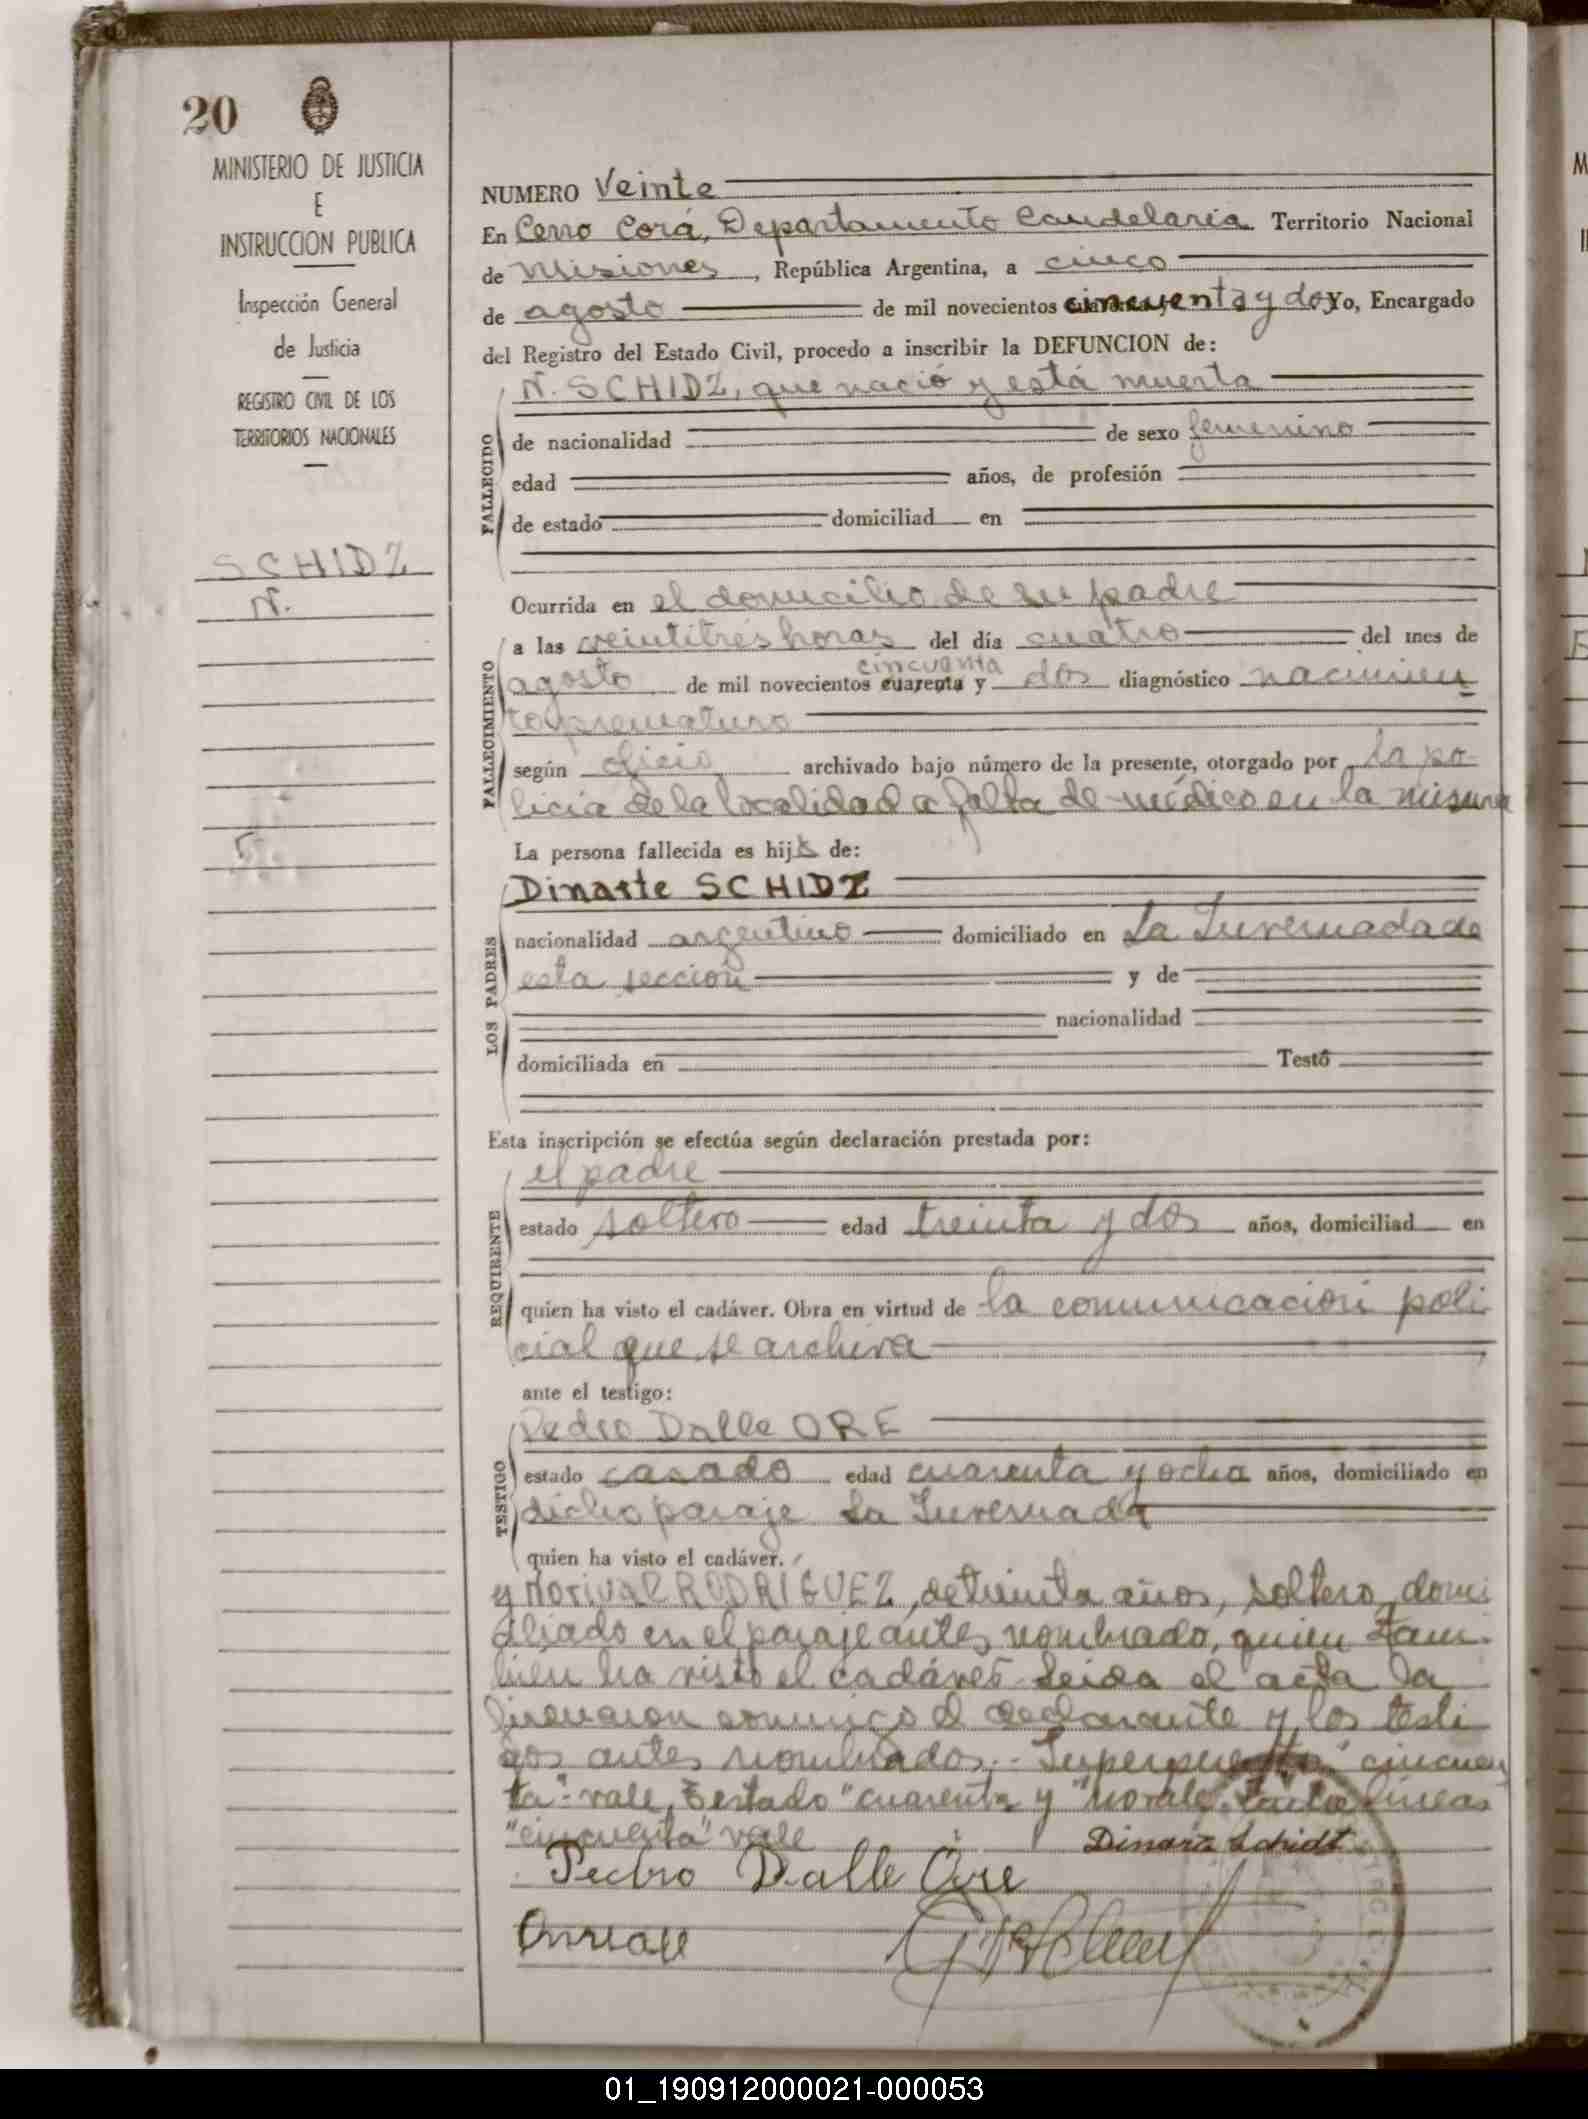 20
MINISTERIO DE JUSTICIA
E
INSTRUCCION PUBLICA
Inspección General
de Justicia
REGISTRO CIVIL DE LOS
TERRITORIOS NACIONALES
SCHIDZ
N.
NUMERO Veinte
En Cerro Corá, Departamento Candelaria Territorio Nacional
de Misiones, República Argentina, a cinco
de agosto de mil novecientos cincuenta y dos Yo, Encargado
del Registro del Estado Civil, procedo a inscribir la DEFUNCION de:
N. SCHIDZ, que nació y está muerta
FALLECIDO
de nacionalidad de sexo femenino
edad años, de profesión
de estado domiciliad en
FALLECIMIENTO
Ocurrida en el domicilio de su padre
a las veintitrés horas del día cuatro del mes de
cincuenta
agosto de mil novecientos cuarenta y dos diagnóstico nacimien
to prematuro
según oficio archivado bajo número de la presente, otorgado por la po-
licia de la localidad a falta de médico en la misma
La persona fallecida es hija de:
LOS PADRES
Dinarte SCHIDZ
nacionalidad argentino domiciliado en La Invernada de
esta sección y de
nacionalidad
domiciliada en Testó
Esta inscripción se efectúa según declaración prestada por:
REQUIRENTE
el padre
estado soltero edad treinta y dos años, domiciliad en
quien ha visto el cadáver. Obra en virtud de la comunicación poli
cial que se archiva
ante el testigo:
TESTIGO
Pedro Dalle ORE
estado casado edad cuarenta y ocho años, domiciliado en
dicho paraje La Invernada
quien ha visto el cadáver.
y RODRIGUEZ, de treinta años, soltero, domi
ciliado en el paraje antes nombrado, quien tam-
bién ha visto el cadáver. Leida el acta la
firmaron conmigo el declarante y los testi
gos antes nombrados.- Superpuesto "cincuen
ta"- vale, Testado "cuarenta y" no vale. líneas
"cincuenta" vale
Dinarte Schidt
Pedro Dalle Ore
01_190912000021-000053